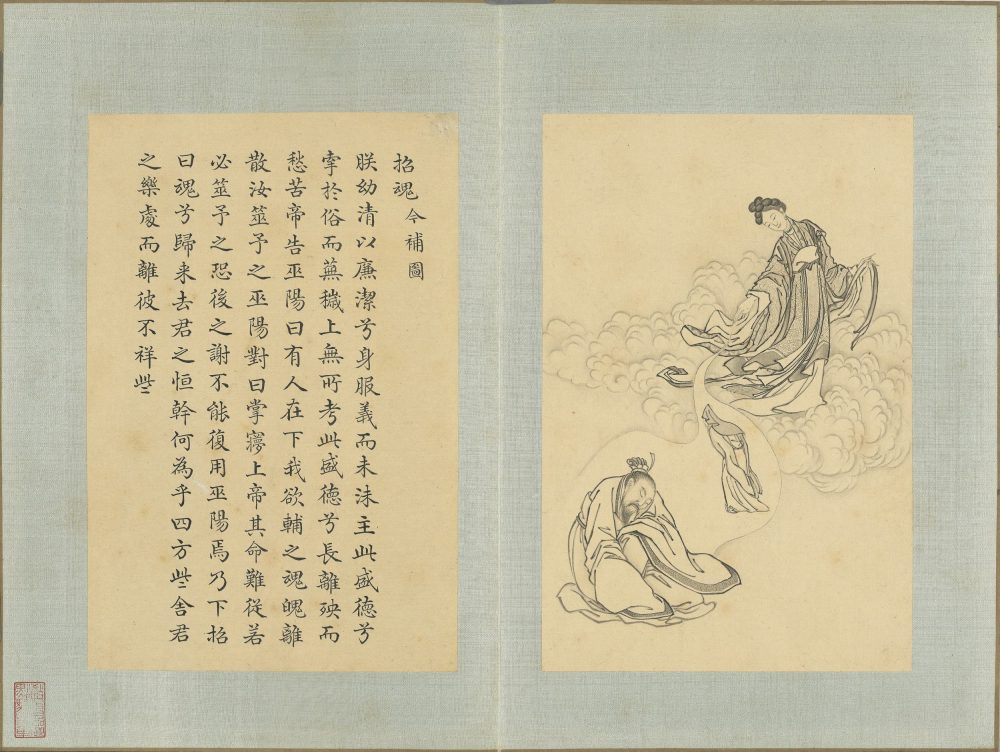 招魂 今補圖
朕幼清以廉潔兮身服義而未沬主此盛德兮
牽於俗而蕪穢上無所考此盛德兮長離殃而
愁苦帝告巫陽曰有人在下我欲輔之魂魄離
散汝筮予之巫陽對曰掌㝱上帝其命難從若
必筮予之恐後之謝不能復用巫陽焉乃下招
曰魂兮歸来去君之恒幹何為乎四方些舍君
之樂處而離彼不祥些